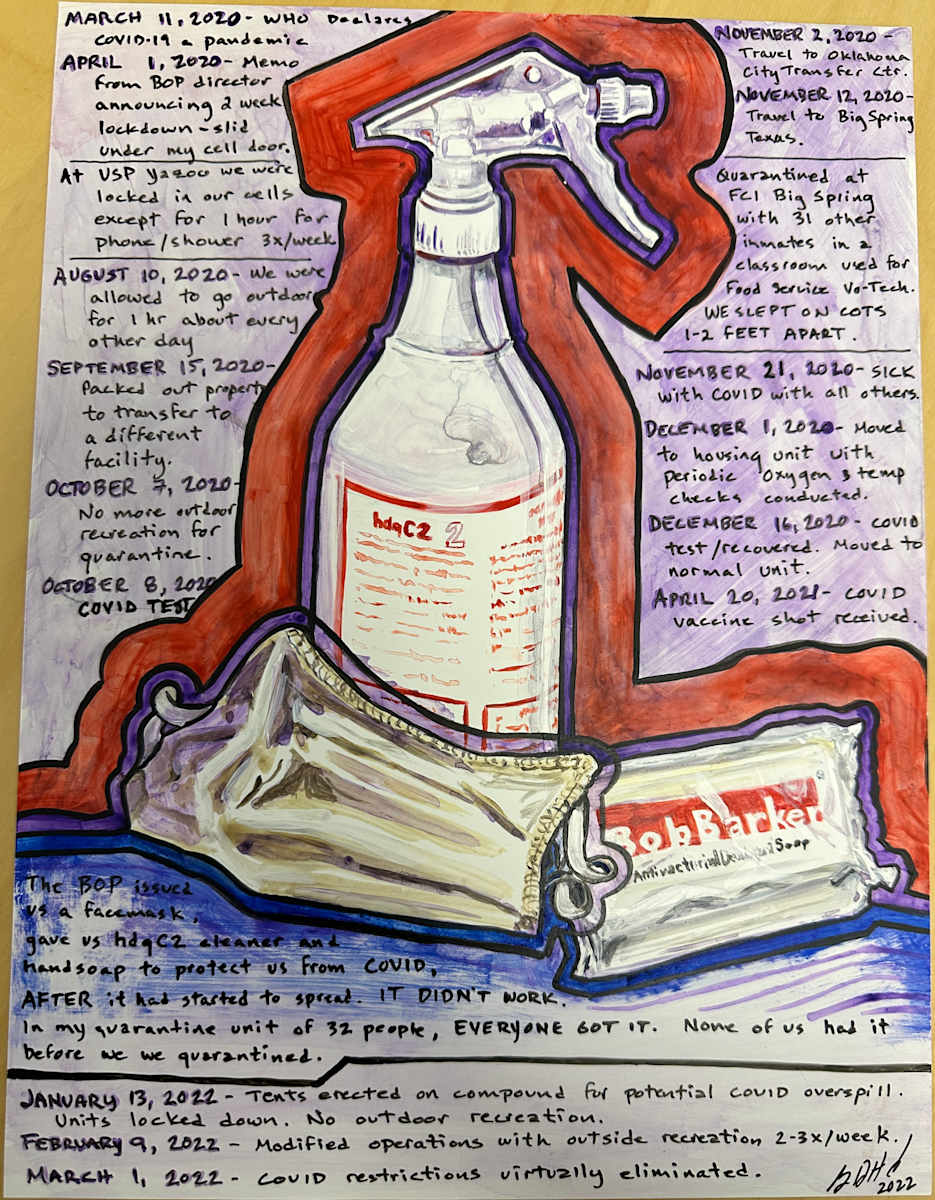 MARCH 11, 2020 - WHO Declares
COVID-19 a pandemic
APRIL 1, 2020 - Memo
from BOP director
announcing 2 week
lockdown - slid
under my cell door.
At USP Yazoo we were
locked in our cells
except for 1 hour for
phone/shower 3x/week
AUGUST 10, 2020 - We were
allowed to go outdoor
for 1 hr about every
other day
SEPTEMBER 15, 2020 -
Packed out property
to transfer to
a different
facility.
OCTOBER 7, 2020 -
No more outdoor
recreation for
quarantine.
OCTOBER 8, 2020
COVID TEST
NOVEMBER 2, 2020 -
Travel to Oklahoma
City Transfer Ctr.
NOVEMBER 12, 2020 -
Travel to Big Spring
Texas.
Quarantined at
FCI Big Spring
with 31 other
inmates in a
classroom used for
Food Service Vo-Tech.
WE SLEPT ON COTS
1-2 FEET APART.
NOVEMBER 21, 2020 - SICK
with COVID with all others.
DECEMBER 1, 2020 - Moved
to housing unit with
periodic oxygen & temp
checks conducted.
DECEMBER 16, 2020 - COVID
test/recovered. Moved to
normal unit.
APRIL 20, 2021 - COVID
vaccine shot received.
hdqC2 2
BobBarker
Antibacterial Soap
The BOP issued
us a facemask,
gave us hdqC2 cleaner and
handsoap to protect us from COVID,
AFTER it had started to spread. IT DIDN'T WORK.
In my quarantine unit of 32 people, EVERYONE GOT IT. None of us had it
before we we quarantined.
JANUARY 13, 2022 - Tents erected on compound for potential COVID overspill.
Units locked down. No outdoor recreation.
FEBRUARY 9, 2022 - Modified operations with outside recreation 2-3x/week.
MARCH 1, 2022 - COVID restrictions virtually eliminated.
2022